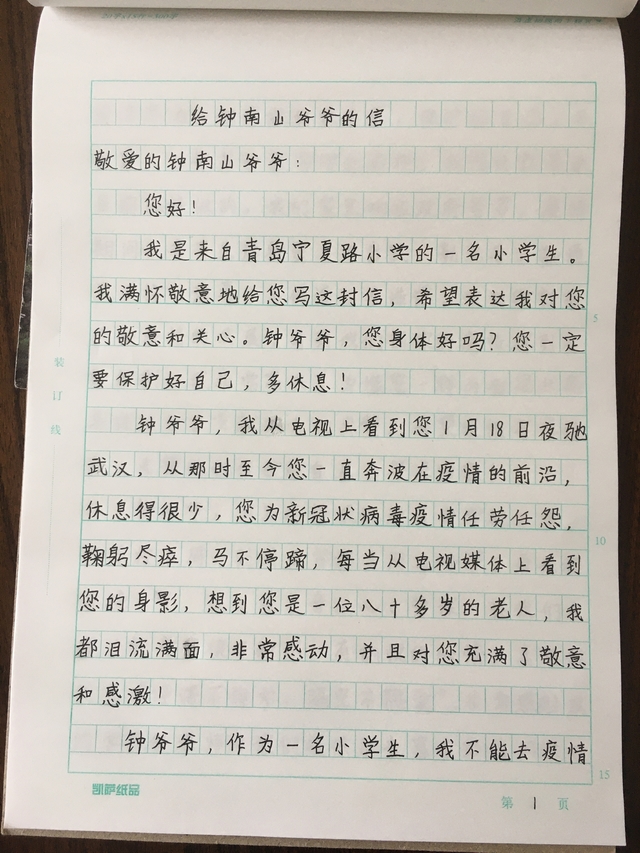 给钟南山爷爷的信
敬爱的钟南山爷爷：
您好！
我是来自青岛宁夏路小学的一名小学生。
我满怀敬意地给您写这封信，希望表达我对您
的敬意和关心。钟爷爷，您身体好吗？您一定
要保护好自己，多休息！
钟爷爷，我从电视上看到您1月18日夜驰
武汉，从那时至今您一直奔波在疫情的前沿，
休息得很少，您为新冠状病毒疫情任劳任怨，
鞠躬尽瘁，马不停蹄，每当从电视媒体上看到
您的身影，想到您是一位八十多岁的老人，我
都泪流满面，非常感动，并且对您充满了敬意
和感激！
钟爷爷，作为一名小学生，我不能去疫情
装订线
5
10
15
凯萨纸品
第1页